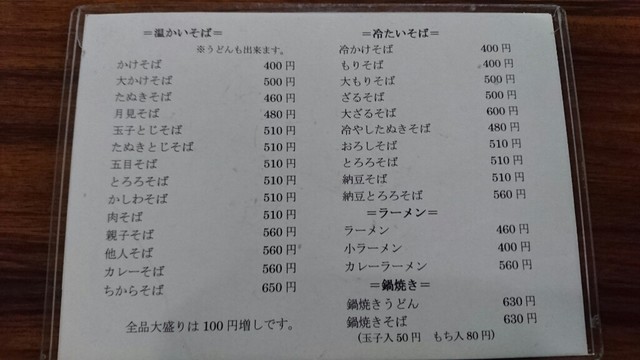 ＝温かいそば＝
※うどんも出来ます。
かけそば 400円
大かけそば 500円
たぬきそば 460円
月見そば 480円
玉子とじそば 510円
たぬきとじそば 510円
五目そば 510円
とろろそば 510円
かしわそば 510円
肉そば 510円
親子そば 560円
他人そば 560円
カレーそば 560円
ちからそば 650円
全品大盛りは100円増しです。
＝冷たいそば＝
冷かけそば 400円
もりそば 400円
大もりそば 500円
ざるそば 500円
大ざるそば 600円
冷やしたぬきそば 480円
おろしそば 510円
とろろそば 510円
納豆そば 510円
納豆とろろそば 560円
＝ラーメン＝
ラーメン 460円
小ラーメン 400円
カレーラーメン 560円
＝鍋焼き＝
鍋焼きうどん 630円
鍋焼きそば 630円
（玉子入50円 もち入80円）